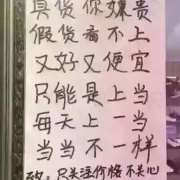 真货你嫌贵
假货看不上
又好又便宜
只能是上当
每天上一当
当当不一样
致：只关注价格不关心